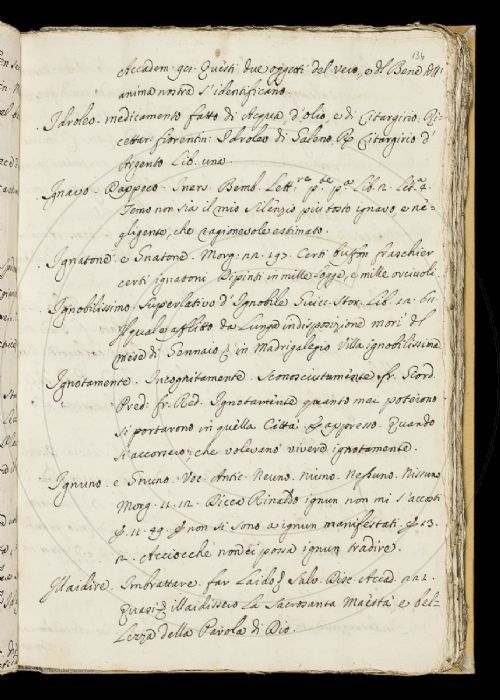 134
Accadem. 901. Questi due oggetti del vero, e del Bene dell'
anima nostra s'identificano.
Idroleo. medicamento fatto di Acqua, d'olio, e di Litargirio. Ri-
cettar. fiorentin. Idroleo di Galeno, Rp Litargirio d'
Argento Lib. una.
Ignavo. Dappoco. Iners. Bemb. Lett.re p.te p.a Lib. 2. Let.a 4.
Temo non sia il mio silenzio più tosto ignavo, e ne-
gligente, che ragionevole estimato.
Ignatone e Gnatone. Morg. 22. 197. Certi buffon fraschier
certi ignatoni Dipinti in mille logge, e mille orciuoli.
Ignobilissimo. Superlativo d'Ignobile Guicc. Stor. Lib. 12.
Il quale afflitto da lunga indisposizione morì del
mese di Gennaio in Madrigalegio Villa ignobilissima
Ignotamente. Incognitamente. Sconosciutamente. fr. Giord.
Pred. fr. Red. Ignotamente quanto mai poterono
si portarono in quella Città. E appresso. Quando
si accorsero, che volevano vivere ignotamente.
Ignuno. e Gnuno. Voc. Antic. Neuno. Niuno. Nessuno. Nissuno
Morg. 11. 12. Dicea Rinaldo ignun non mi s'accosti
E 11. 49. E non si sono a ignun manifestati. E 13.
12. Acciocchè non ci possa ignun tradire.
Illaidire. Imbrattare. far Laido. Salv. Disc. Accad. 221.
Quasi illaidissero la Sacrosanta Maestà e bel-
lezza della Parola di Dio.